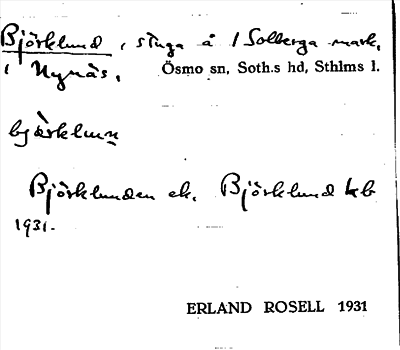 Björklund, stuga å 1 Solberga mark,
i Nynäs. Ösmo sn, Soth.s hd, Sthlms l.
bjærklun
Björklunden ek. Björklund kb
1931.
ERLAND ROSELL 1931